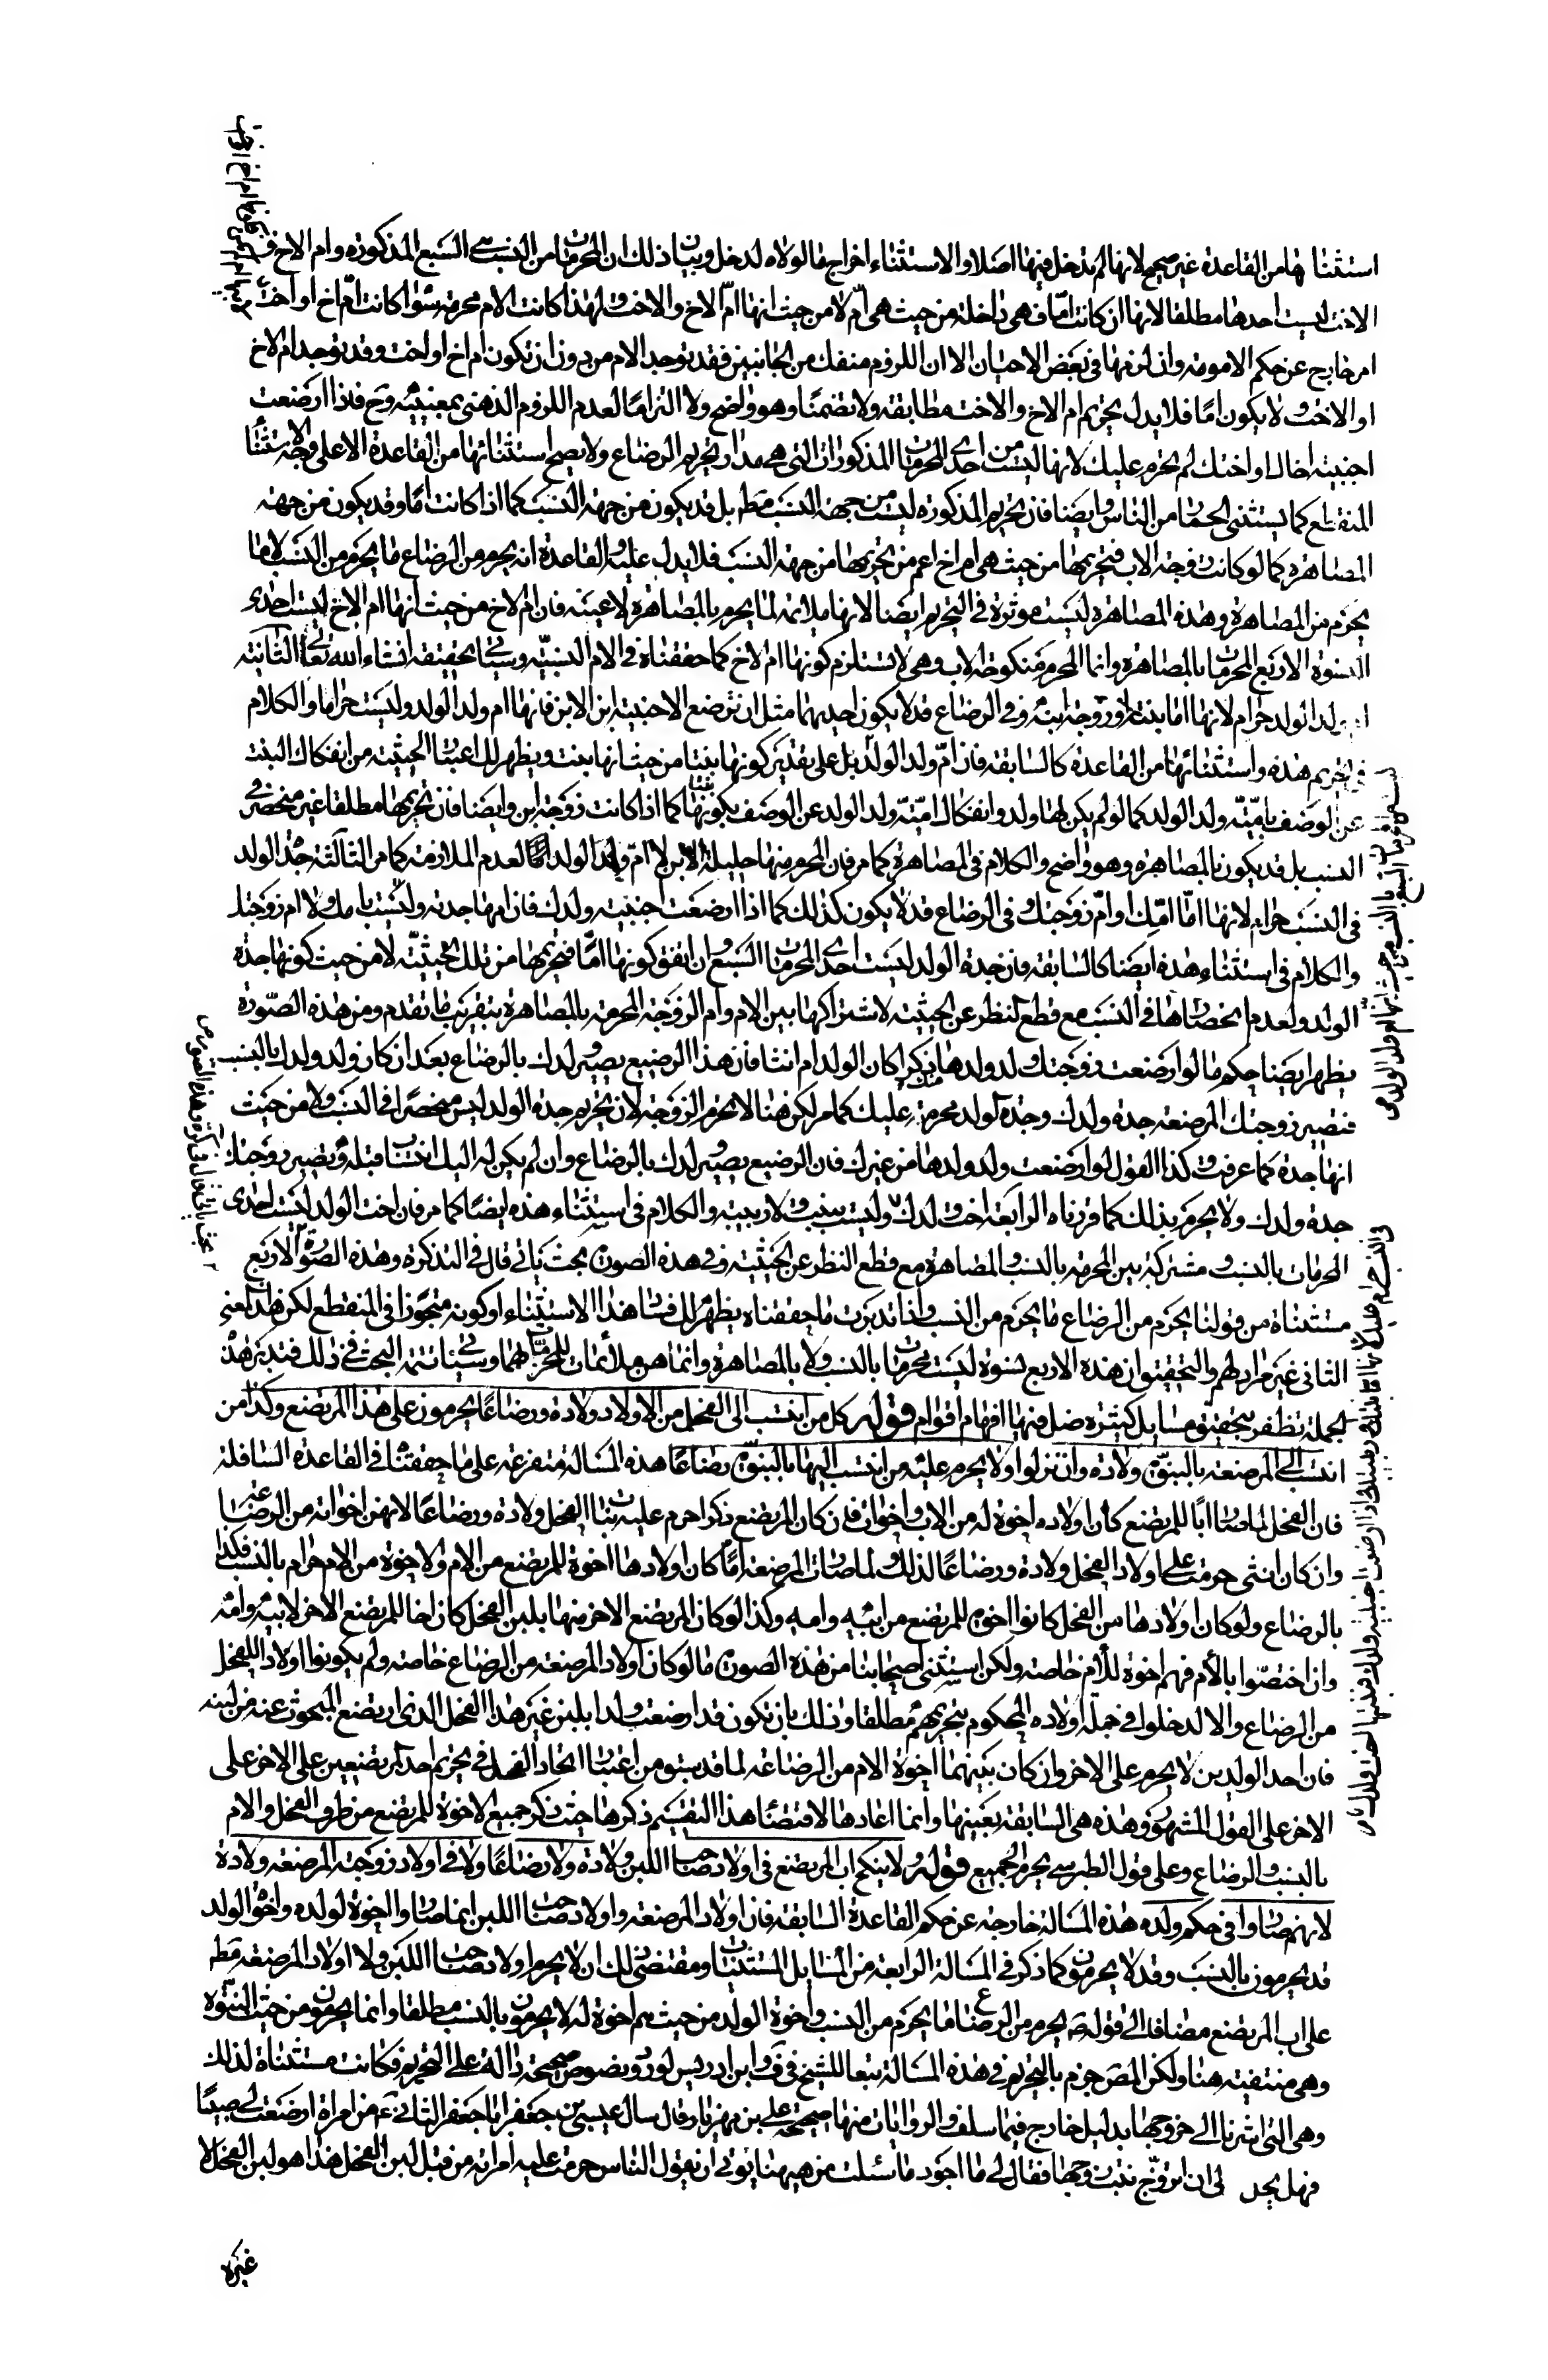 استثناؤها من القاعدة غير صحيح لانها لم تدخل فيها اصلا والاستثناء اخراج ما لولاه لدخل وبيان ذلك ان المحرمات من النسب هي السبع المذكورة وام الاخ و
الاخت ليست احدها مطلقا لانها ان كانت امّا فهى داخلة من حيث هى امّ لا من حيث انها امّ الاخ والاخت ولهذا كانت الام محرمة سواء كانت امّ اخ او اخت
امر خارج عن حكم الامومة وان لزمها فى بعض الاحيان الا ان اللزوم منفك من الجانبين فقد توجد الام من دون ان تكون ام اخ او اخت وقد توجد ام الاخ
او الاخت ولا يكون امّا فلا يدل تحريم ام الاخ والاخت مطابقة ولا تضمنًا وهو واضح ولا التزامًا لعدم اللزوم الذهنى بمعنييه وح فاذا ارضعت
اجنبية اخاك او اختك لم تحرم عليك لانها ليست من احدى المحرمات المذكورات التى هى مدار تحريم الرضاع ولا يصح استثنائها من القاعدة الا على وجه الاستثناء
المنقطع كما يستثنى الحمار من الناس وايضا فان تحريم المذكورة ليست من جهة النسب مطم بل قد يكون من جهة النسب كما اذا كانت امّا وقد يكون من جهة
المصاهرة كما لو كانت زوجة الاب فتحريمها من حيث هى ام اخ اعم من تحريمها من جهة النسب فلا يدل عليه القاعدة انه يحرم من الرضاع ما يحرم من النسب لا ما
يحرم من المصاهرة وهذه المصاهرة ليست موثرة فى التحريم ايضا لانها ملائمة لما يحرم بالمصاهرة لا عينه فان ام الاخ من حيث انها ام الاخ ليست احدى
النسوة الاربع المحرمات بالمصاهرة وانما المحرم منكوحة الاب وهى لا تستلزم كونها ام الاخ كما حققناه فى الام النسبيّة وسياتى تحقيقه انشاء الله تعالى الثانية
ام ولد الولد حرام لانها اما بنته او زوجة ابنه وفى الرضاع قد لا يكون احديهما مثل ان ترضع الاجنبية ابن الابن فانها ام ولد الولد وليست حراما والكلام
فى تحريم هذه واستثنائها من القاعدة كالسابقة فان امّ ولد الولد بل على تقدير كونها بنتا من حيث انها بنت ويظهر لك اعتبار الحيثية من انفكاك البنت
عن الوصف بامّيّة ولد الولد كما لو لم يكن لها ولد وانفكاك امّيّة ولد الولد عن الوصف بكونها بنتا كما اذا كانت زوجة ابن وايضا فان تحريمها مطلقا غير منحصر فى
النسب بل قد يكون بالمصاهرة وهو واضح والكلام فى المصاهرة كما مر فان المحرم منها حليلة الابن لا امّ ولد الولد لعدم الملازمة كما مر الثالثة جدّة الولد
فى النسب حرام لانها امّا امّك او امّ زوجتك وفى الرضاع قد لا يكون كذلك كما اذا ارضعت اجنبية ولدك فان امها جدته وليست بامك ولا ام زوجتك
والكلام فى استثناء هذه ايضا كالسابقة فان جدة الولد ليست احدى المحرمات السبع وان اتفق كونها امّا فتحريمها من تلك الحيثيّة لا من حيث كونها جدة
الولد ولعدم انحصارها فى النسب مع قطع النظر عن الحيثية لاشتراكها بين الام وام الزوجة المحرمة بالمصاهرة بتقريب ما تقدم ومن هذه الصّورة
يظهر ايضا حكم ما لو ارضعت زوجتك ولد ولدها ذكرا كان الولد ام انثى فان هذا الرضيع يصير ولدك بالرضاع بعد ان كان ولد ولدك بالنسب
فتصير زوجتك المرضعة جدة ولدك وجدة الولد محرمة عليك كما مر لكن هنا لا تحرم الزوجة لان تحريم جدة الولد ليس منحصرًا فى النسب ولا من حيث
انها جدة كما عرفت وكذا القول لو ارضعت ولد ولدها من غيرك فان الرضيع يصير ولدك بالرضاع وان لم يكن له اليك انتساب قبله وتصير زوجتك
جدة ولدك ولا يحرم بذلك كما قررناه الرابعة اخت ولدك وليست ببنت ولا ربيبة والكلام فى استثناء هذه ايضا كما مر فان اخت الولد ليست احدى
المحرمات بالنسب ومشتركة بين المحرمة بالنسب والمصاهرة مع قطع النظر عن الحيثية وفى هذه الصورة بحث ياتى قال فى التذكرة وهذه الصور الاربع
مستثناة من قولنا يحرم من الرضاع ما يحرم من النسب واذا تدبرت ما حققناه يظهر لك فساد هذا الاستثناء او كونه متجوزا فى المنقطع لكن هذا المعنى
الثانى غير مراد لهم والتحقيق ان هذه الاربع نسوة ليست محرمات بالنسب ولا بالمصاهرة وانما هن ملائمات للمحرمات بهما وسياتى تتمة البحث فى ذلك فتدبر هذه
الجملة تظفر بتحقيق مسايل كثيرة ضل فيها افهام اقوام قوله كل من انتسب الى الفحل من الاولاد ولادة ورضاعًا يحرمون على هذا المرتضع وكذا من
انتسب الى المرضعة بالبنوة ولادة وان نزلوا ولا يحرم عليه من انتسب اليها بالبنوة رضاعًا هذه المسالة متفرعة على ما حققناه فى القاعدة السالفة
فان الفحل لما صار ابًا للمرتضع كان اولاده اخوة له من الاب واخوات فان كان المرتضع ذكرا حرم عليه بنات الفحل ولادة ورضاعًا لانهن اخواته من الرضاعة
وان كان انثى حرمت على اولاد الفحل ولادة ورضاعًا لذلك ولما صارت المرضعة امًّا كان اولادها اخوة للمرتضع من الام والاخوة من الام حرام بالنسب فكذا
بالرضاع ولو كان اولادها من الفحل كانوا اخوة للمرتضع من ابيه وامه وكذا لو كان المرتضع الاخر منها بلبن الفحل كان اخا للمرتضع الاخر لابيه وامه
وان اختصّوا بالام فهم اخوة للأم خاصة ولكن استثنى اصحابنا من هذه الصورة ما لو كان اولاد المرضعة من الرضاع خاصة ولم يكونوا اولاد الفحل
من الرضاع والا لدخلوا فى جملة اولاده المحكوم بتحريمهم مطلقا وذلك بان تكون قد ارضعت ولدا بلبن غير هذا الفحل الذى ارتضع المبحوث عنه من لبنه
فان احد الولدين لا يحرم على الاخر وان كان بينهما اخوة الام من الرضاعة لما قد سبق من اعتبار اتحاد الفحل فى تحريم احد المرتضعين على الاخر على
الاخر على القول المشهور وهذه هى السابقة بعينها وانما اعادها لاقتضاء هذا التقسيم ذكرها حيث ذكر جميع الاخوة للمرتضع من طرف الفحل والام
بالنسب والرضاع وعلى قول الطبرسى يحرم الجميع قوله ولا ينكح اب المرتضع فى اولاد صاحب اللبن ولادة ولا رضاعًا ولا فى اولاد زوجته المرضعة ولادة
لانهم صاروا فى حكم ولده هذه المسالة خارجة عن حكم القاعدة السابقة فان اولاد المرضعة واولاد صاحب اللبن انما صاروا اخوة لولده واخوة الولد
قد يحرمون بالنسب وقد لا يحرمون كما ذكر فى المسالة الرابعة من المسايل المستثنيات ومقتضى ذلك ان لا يحرم اولاد صاحب اللبن ولا اولاد المرضعة مطم
على اب المرتضع مضافا الى قوله ص يحرم من الرضاع ما يحرم من النسب واخوة الولد من حيث هم اخوة له لا يحرمون بالنسب مطلقا وانما يحرمون من حيث البنوة
وهى منتفية هنا ولكن المص جزم بالتحريم فى هذه المسالة تبعا للشيخ فى ف وابن ادريس لورود نصوص صحيحة دالة على التحريم فكانت مستثناة لذلك
وهى التى اشرنا الى خروجها بدليل خارج فيما سلف والروايات منها صحيحة على بن مهزيار قال سال عيسى بن جعفر ابا جعفر الثانى ع عن امراة ارضعت لى صبيًا
فهل يحل لى ان اتزوّج بنت زوجها فقال لى ما اجود ما سئلت من هيهنا يؤتى ان يقول الناس حرمت عليه امراته من قبل لبن الفحل هذا هو لبن الفحل لا
غيره